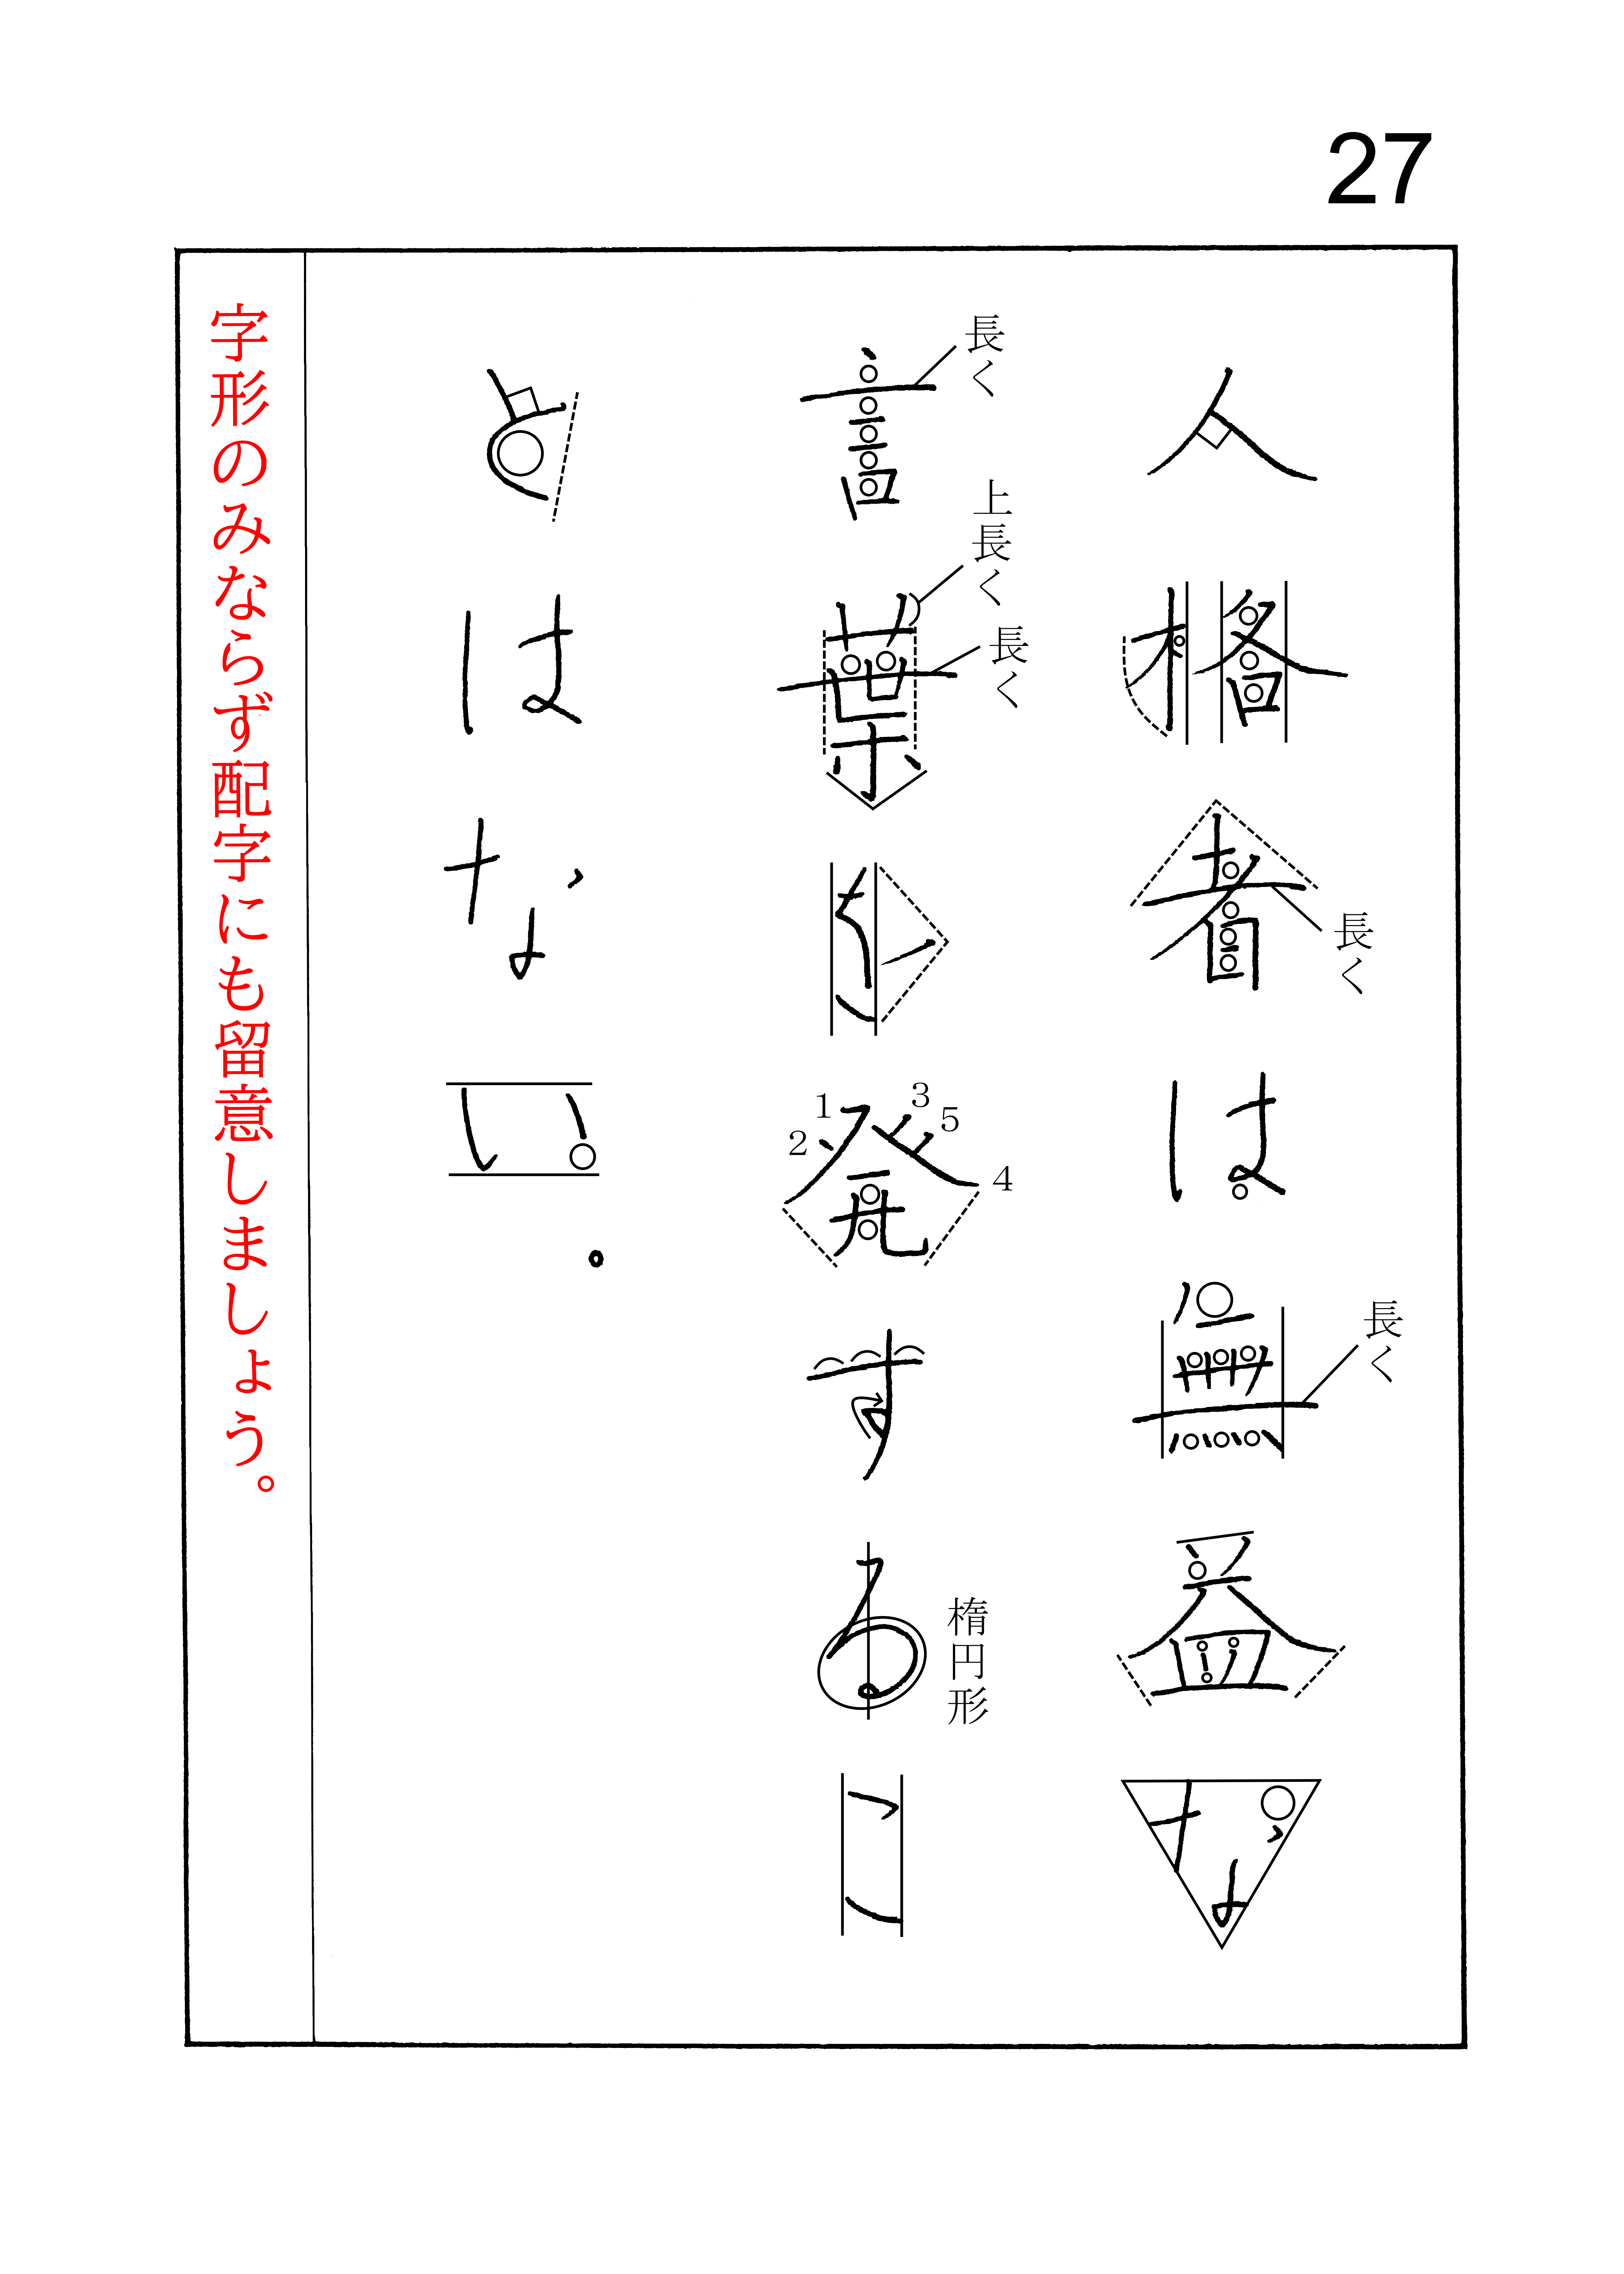 27
人格者は無益な
長く
長く
言葉を発する
長く
上長く
長く
1
2
3
5
4
楕円形
こ
とはない。
字形のみならず配字にも留意しましょう。